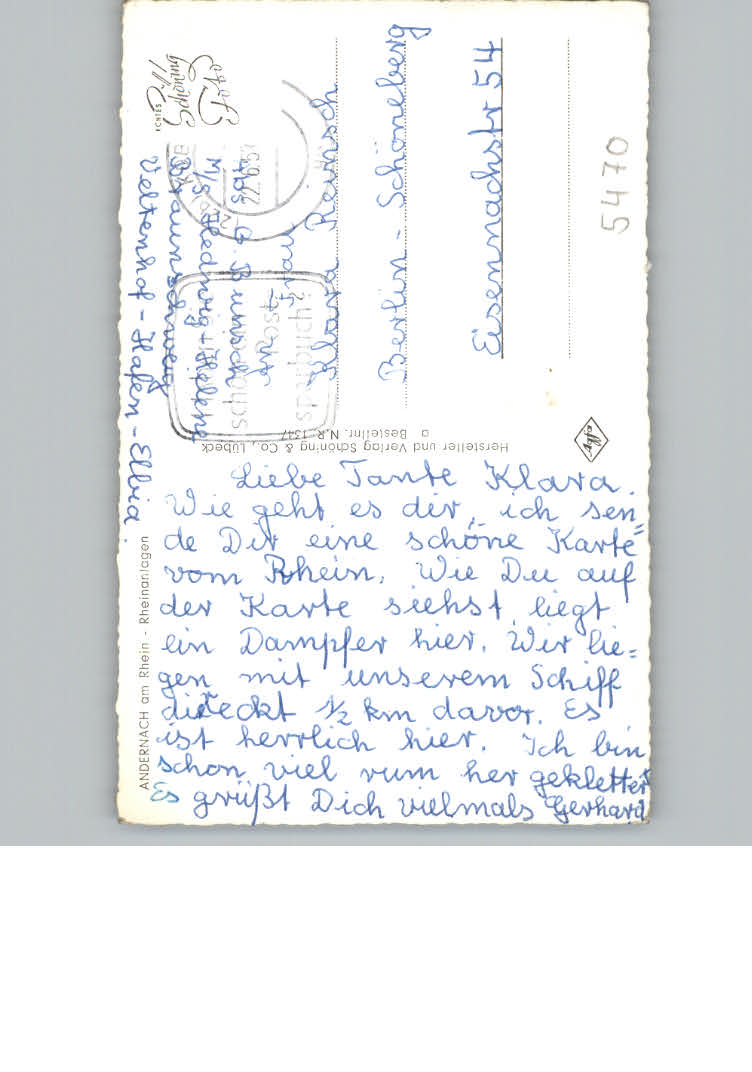 Liebe Tante Klara.
Wie geht es dir, ich sen=
de Dir eine schöne Karte
vom Rhein. Wie Du auf
der Karte siehst, liegt
ein Dampfer hier. Wir lie=
gen mit unserem Schiff
direckt ½ km davor. Es
ist herrlich hier. Ich bin
schon viel rum her geklettert
Es grüßt Dich vielmals Gerhard
ANDERNACH am Rhein - Rheinanlagen
Hersteller und Verlag Schöning & Co., Lübeck
Bestellnr. N.R. 1517
a
ECHTES
Schöning
Foto
22.6.57
M/S Hedwig + Helene
Braunschweig
Veltenhof - Hafen - Elbia.
Klara Reinsch
Berlin - Schöneberg
Eisennachstr 54
5470